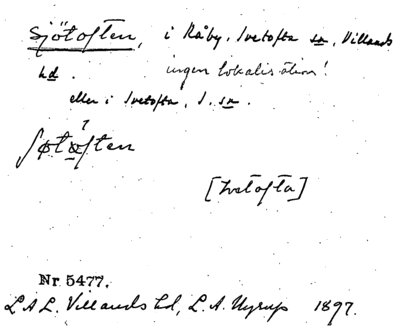 Sjötoften, i Råby, Ivetofta sn, Villands
hd. ingen lokalisation!
eller i Ivetofta, s. sn.
?
[Ivetofta]
Nr 5477.
L A L. Villands hd, L. A. Nyrup 1897.